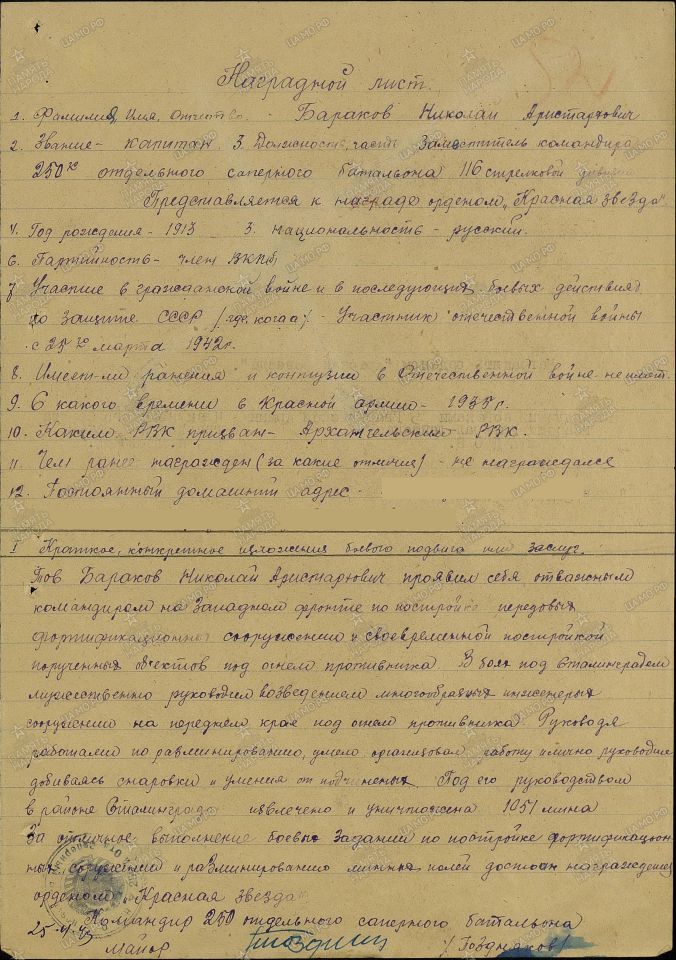 521
Наградной лист.
1. Фамилия, Имя, Отчество. - Бараков Николай Аристархович
2. Звание - капитан. 3. Должность, часть Заместитель командира
250го отдельного саперного батальона 116 стрелковой дивизии
Представляется к награде орденом „Красная звезда"
4. Год рождения - 1913 3. национальность - русский.
6. Партийность - член ВКПб
7. Участие в гражданской войне и в последующих боевых действиях
по защите СССР /где, когда/ - Участник отечественной войны
с 25го марта 1942г.
8. Имеет-ли ранения и контузии в Отечественной войне - не имеет.
9. С какого времени в Красной армии - 1935г.
10. Каким РВК призван - Архангельским РВК.
11. Чем ранее награжден (за какие отличия) - не награждался
12. Постоянный домашний адрес -
I Краткое, конкретное изложения боевого подвига или заслуг.
Тов Бараков Николай Аристархович проявил себя отважным
командиром на Западном фронте по постройке передовых
фортификационных сооружении и своевременной постройкой
порученных обектов под огнем противника. В боях под Сталинградом
мужественно руководил возведением многообразных инженерых
сооружении на переднем края под огнем противника. Руководя
работами по разминированию, умело организовал работу и лично руководил
добиваясь сноровки и умения от подчиненых. Под его руководством
в районе Сталинграда извлечено и уничтожена 1051 мина
За отличное выполнение боевых заданий по постройке фортификацион
ных соружении и разминированию минных полей достоин награждения
орденом „Красная звезда"
Командир 250 отдельного саперного батальона
майор /Поздняков/